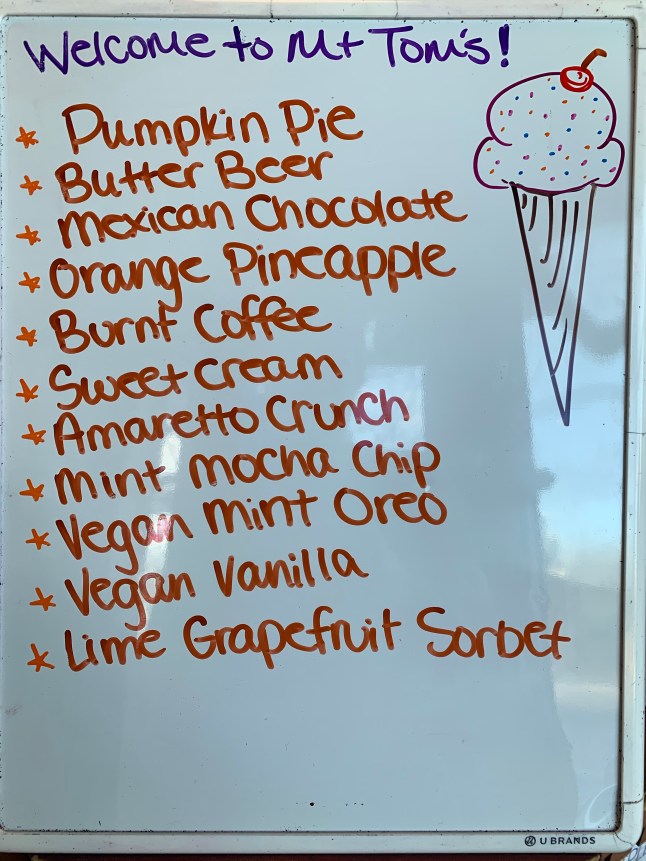 Welcome to Mt Tom's!
* Pumpkin Pie
* Butter Beer
* Mexican Chocolate
* Orange Pineapple
* Burnt Coffee
* Sweet Cream
* Amaretto Crunch
* Mint Mocha Chip
* Vegan Mint Oreo
* Vegan Vanilla
* Lime Grapefruit Sorbet
U BRANDS